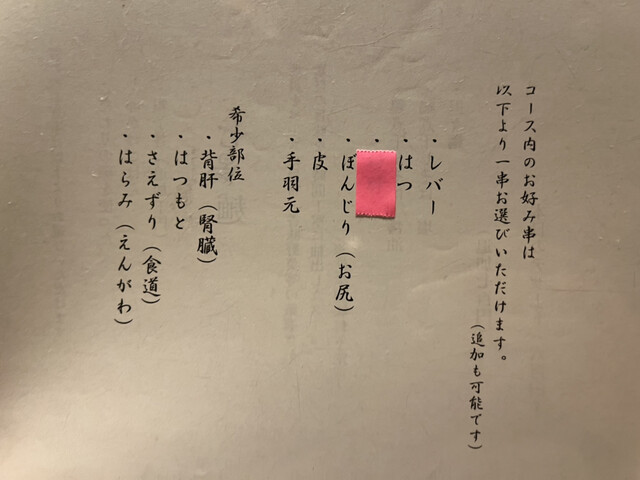 コース内のお好み串は
以下より一串お選びいただけます。
（追加も可能です）
・レバー
・はつ
・
・ぼんじり（お尻）
・皮
・手羽元
希少部位
・背肝（腎臓）
・はつもと
・さえずり（食道）
・はらみ（えんがわ）